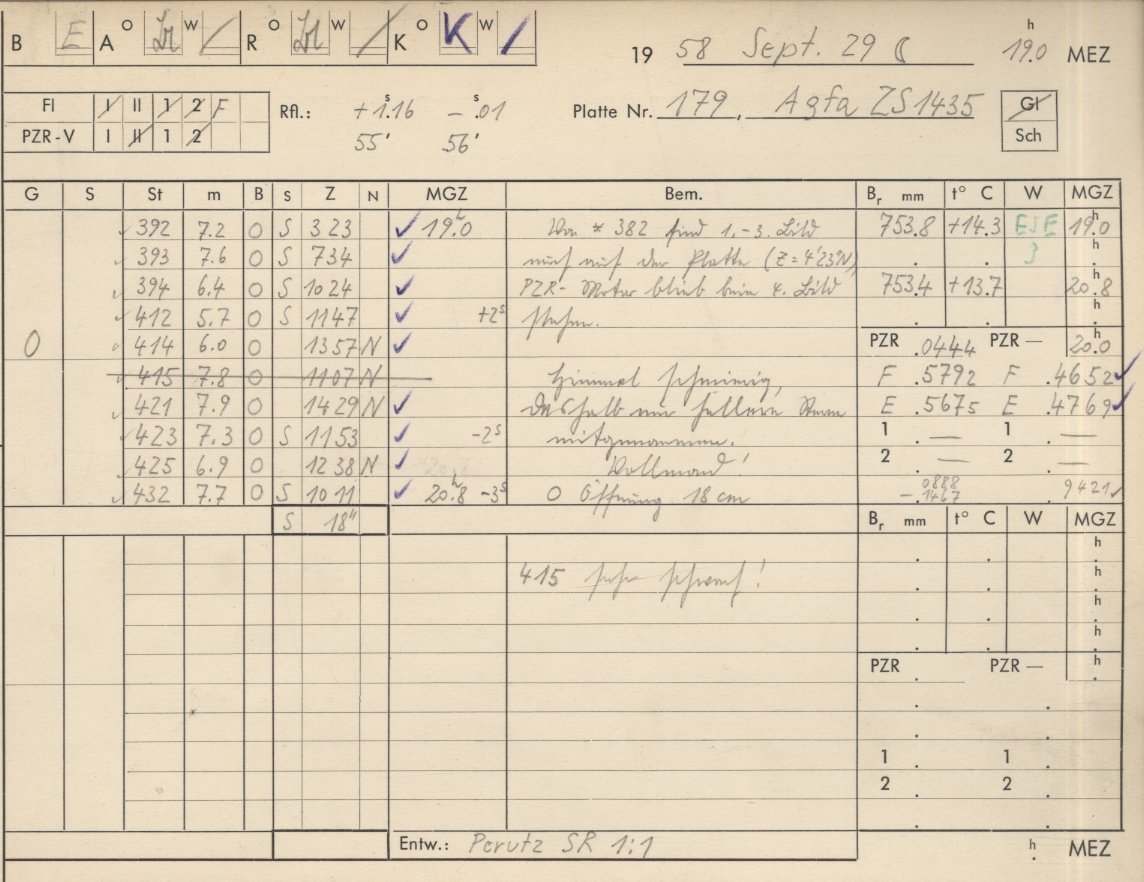 B E A O W R O W K O K W
19 58 Sept. 29 h 19.0 MEZ
Fl I II 1 2 F
PZR-V I II 1 2
Rfl.: +1.ˢ16 -.ˢ01
55' 56'
Platte Nr. 179, Agfa ZS1435
Gl
Sch
G S St m B S Z N MGZ Bem. Bᵣ mm t° C W MGZ
392 7.2 O S 3 23 ✓ 19.ʰ0 Von * 382 sind 1.-3. Bild 753.8 +14.3 ESE 19.ʰ0
393 7.6 O S 7 34 ✓ nicht auf der Platte (Z=4'23"N)
394 6.4 O S 10 24 ✓ PZR-Motor blieb beim 4. Bild 753.4 +13.7 20.ʰ8
412 5.7 O S 11 47 ✓ +2ˢ stehen.
O 414 6.0 O 13 57 N ✓ PZR .0444 PZR — 20.ʰ0
415 7.8 O 11 07 N Himmel F .5792 F .4652 ✓
421 7.9 O 14 29 N ✓ deshalb nur hellere Sterne E .5675 E .4769 ✓
423 7.3 O S 11 53 -2ˢ mitgenommen. 1 . — 1 . —
425 6.9 O 12 38 N ✓ Vollmond! 2 . — 2 . —
432 7.7 O S 10 11 ✓ 20.ʰ8 -3ˢ O Öffnung 18 cm .0888 -.1467 9421 ✓
S 18" Bᵣ mm t° C W MGZ
h
415 sehr schwach! h
h
h
PZR PZR — h
1 1
2 2
Entw.: Perutz SR 1:1 h MEZ